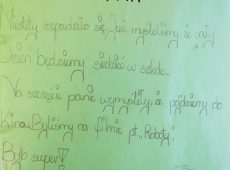 Niestety rozpadało się, już myśleliśmy, że cały
Dzień będziemy siedzieć w szkole.
Na szczęście panie wymyśliły, że pójdziemy do
Kina. Byliśmy na filmie pt. „Roboty”.
Było super!